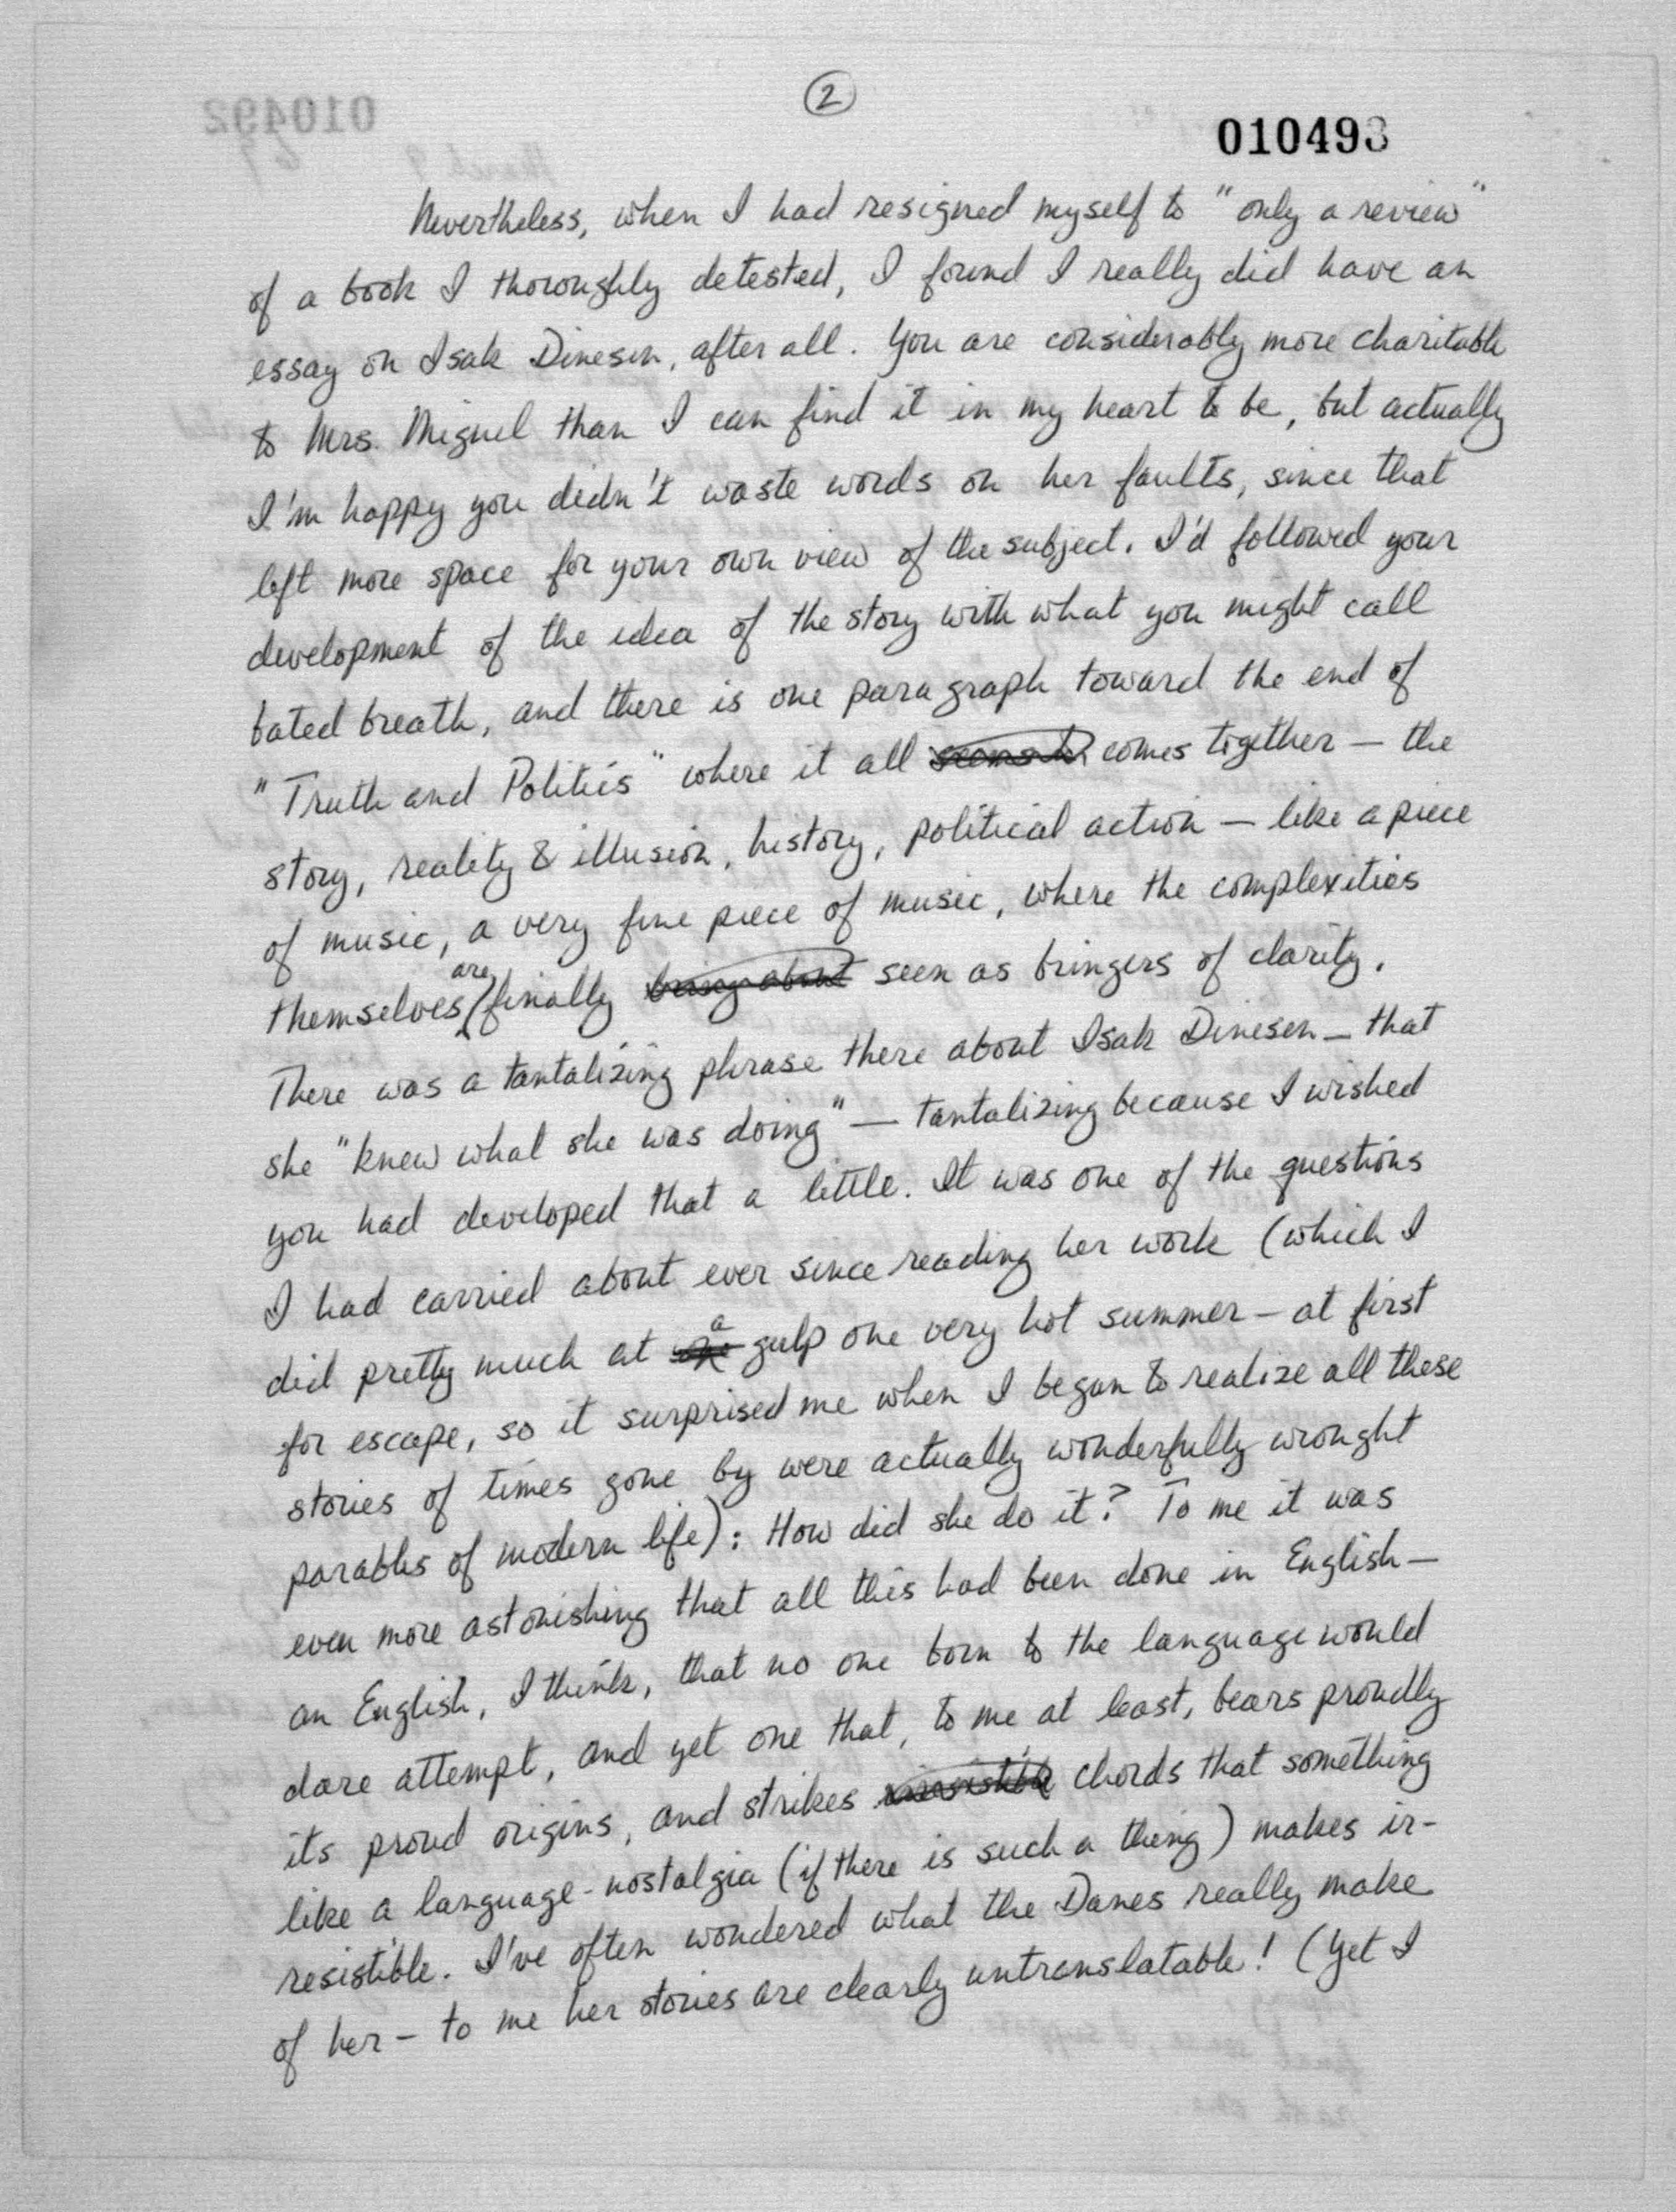 2
010493
Nevertheless, when I had resigned myself to "only a review"
of a book I thoroughly detested, I found I really did have an
essay on Isak Dinesen, after all. You are considerably more charitable
to Mrs. Miguel than I can find it in my heart to be, but actually
I'm happy you didn't waste words on her faults, since that
left more space for your own view of the subject. I'd followed your
development of the idea of the story with what you might call
bated breath, and there is one paragraph toward the end of
"Truth and Politics" where it all comes together — the
story, reality & illusion, history, political action — like a piece
of music, a very fine piece of music, where the complexities
themselves are finally seen as bringers of clarity.
There was a tantalizing phrase there about Isak Dinesen — that
she "knew what she was doing" — tantalizing because I wished
you had developed that a little. It was one of the questions
I had carried about ever since reading her work (which I
did pretty much at a gulp one very hot summer — at first
for escape, so it surprised me when I began to realize all these
stories of times gone by were actually wonderfully wrought
parables of modern life): How did she do it? To me it was
even more astonishing that all this had been done in English —
an English, I think, that no one born to the language would
dare attempt, and yet one that, to me at least, bears proudly
its proud origins, and strikes chords that something
like a language-nostalgia (if there is such a thing) makes ir-
resistible. I've often wondered what the Danes really make
of her — to me her stories are clearly untranslatable! (Yet I